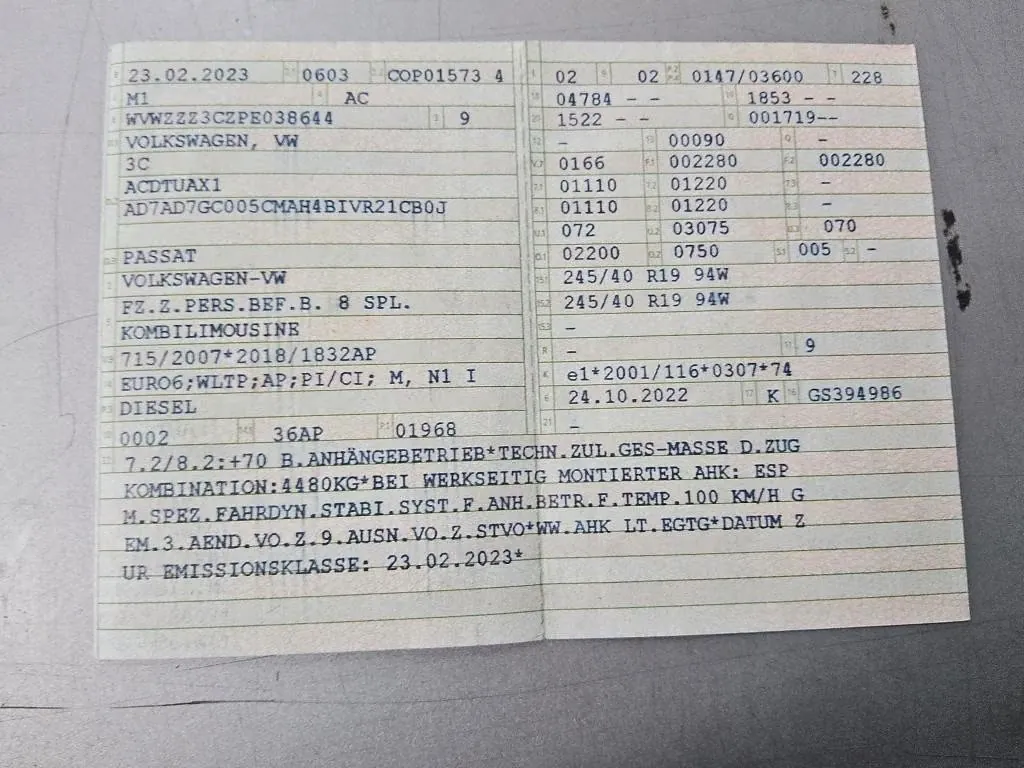 23.02.2023 0603 COP01573 4
M1 AC
WVWZZZ3CZPE038644 9
VOLKSWAGEN, VW
3C
ACDTUAX1
AD7AD7GC005CMAH4BIVR21CB0J
PASSAT
VOLKSWAGEN-VW
FZ.Z.PERS.BEF.B. 8 SPL.
KOMBILIMOUSINE
715/2007*2018/1832AP
EURO6;WLTP;AP;PI/CI; M, N1 I
DIESEL
0002 36AP 01968
02 02 0147/03600 228
04784 - - 1853 - -
1522 - - 001719--
- 00090 -
0166 002280 002280
01110 01220 -
01110 01220 -
072 03075 070
02200 0750 005 -
245/40 R19 94W
245/40 R19 94W
-
- 9
e1*2001/116*0307*74
24.10.2022 K GS394986
-
7.2/8.2:+70 B.ANHÄNGEBETRIEB*TECHN.ZUL.GES-MASSE D.ZUG
KOMBINATION:4480KG*BEI WERKSEITIG MONTIERTER AHK: ESP
M.SPEZ.FAHRDYN.STABI.SYST.F.ANH.BETR.F.TEMP.100 KM/H G
EM.3.AEND.VO.Z.9.AUSN.VO.Z.STVO*WW.AHK LT.EGTG*DATUM Z
UR EMISSIONSKLASSE: 23.02.2023*